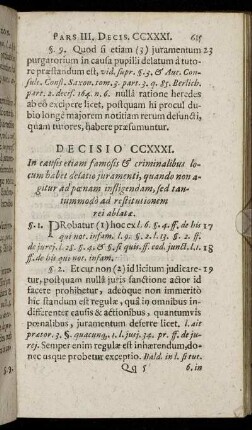 PARS III. DECIS. CCXXXI. 615
§. 9. Quod si etiam (3) juramentum 23
purgatorium in causa pupilli delatum à tuto-
re præstandum est, vid. supr. §. 3. & Aut. Con-
sult. Const. Saxon. tom. 3. part. 3. q. 85. Berlich.
part. 2. decis. 164. n. 6. nulla ratione heredes
ab eo excipere licet, postquam hi procul du-
bio longè majorem notitiam rerum defuncti,
quàm tutores, habere præsumuntur.
DECISIO CCXXXI.
In causis etiam famosis & criminalibus lo-
cum habet delatio juramenti, quando non a-
gitur ad pœnam infligendam, sed tan-
tummodò ad restitutionem
rei ablatæ.
§. 1. PRobatur (1) hoc ex l. 6. §. 4. ff. de his 17
qui not. infam. l. 9. §. 2. l. 13. §. 2. ff.
de jurej. l. 25. §. 4. & §. si quis. ff. eod. junct. l. 1. 18
ff. de his qui not. infam.
§. 2. Et cur non (2) id licitum judicare- 19
tur, postquam nullâ juris sanctione actor id
facere prohibetur, adeòque non immeritò
hic standum est regulæ, quâ in omnibus in-
differenter causis & actionibus, quantumvis
pœnalibus, juramentum deferre licet. l. ait
prætor. 3. §. quacunq. 1. l. jurj. 34. pr. ff. de ju-
rej. Semper enim regulæ est inhærendum, do-
nec usque probetur exceptio. Bald. in l. si tut.
Qq 5 6. in